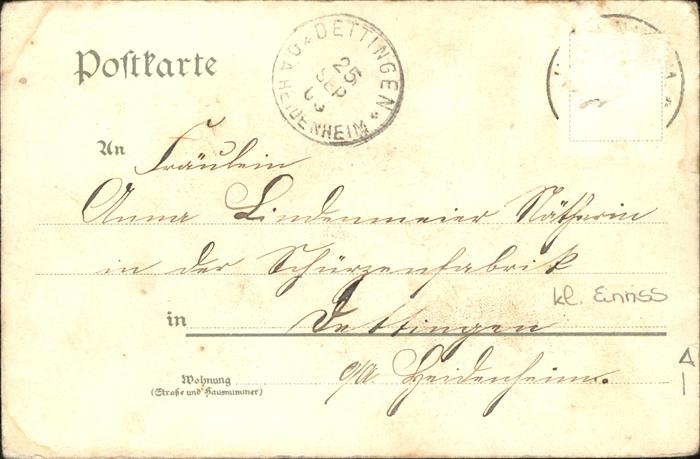 Postkarte
DETTINGEN
OA HEIDENHEIM
25
SEP
03
An Fräulein
Anna Lindenmeier Nätherin
in der Schürzenfabrik
kl. Einriss
in Dettingen
Wohnung
O/A. Heidenheim.
(Straße und Hausnummer)